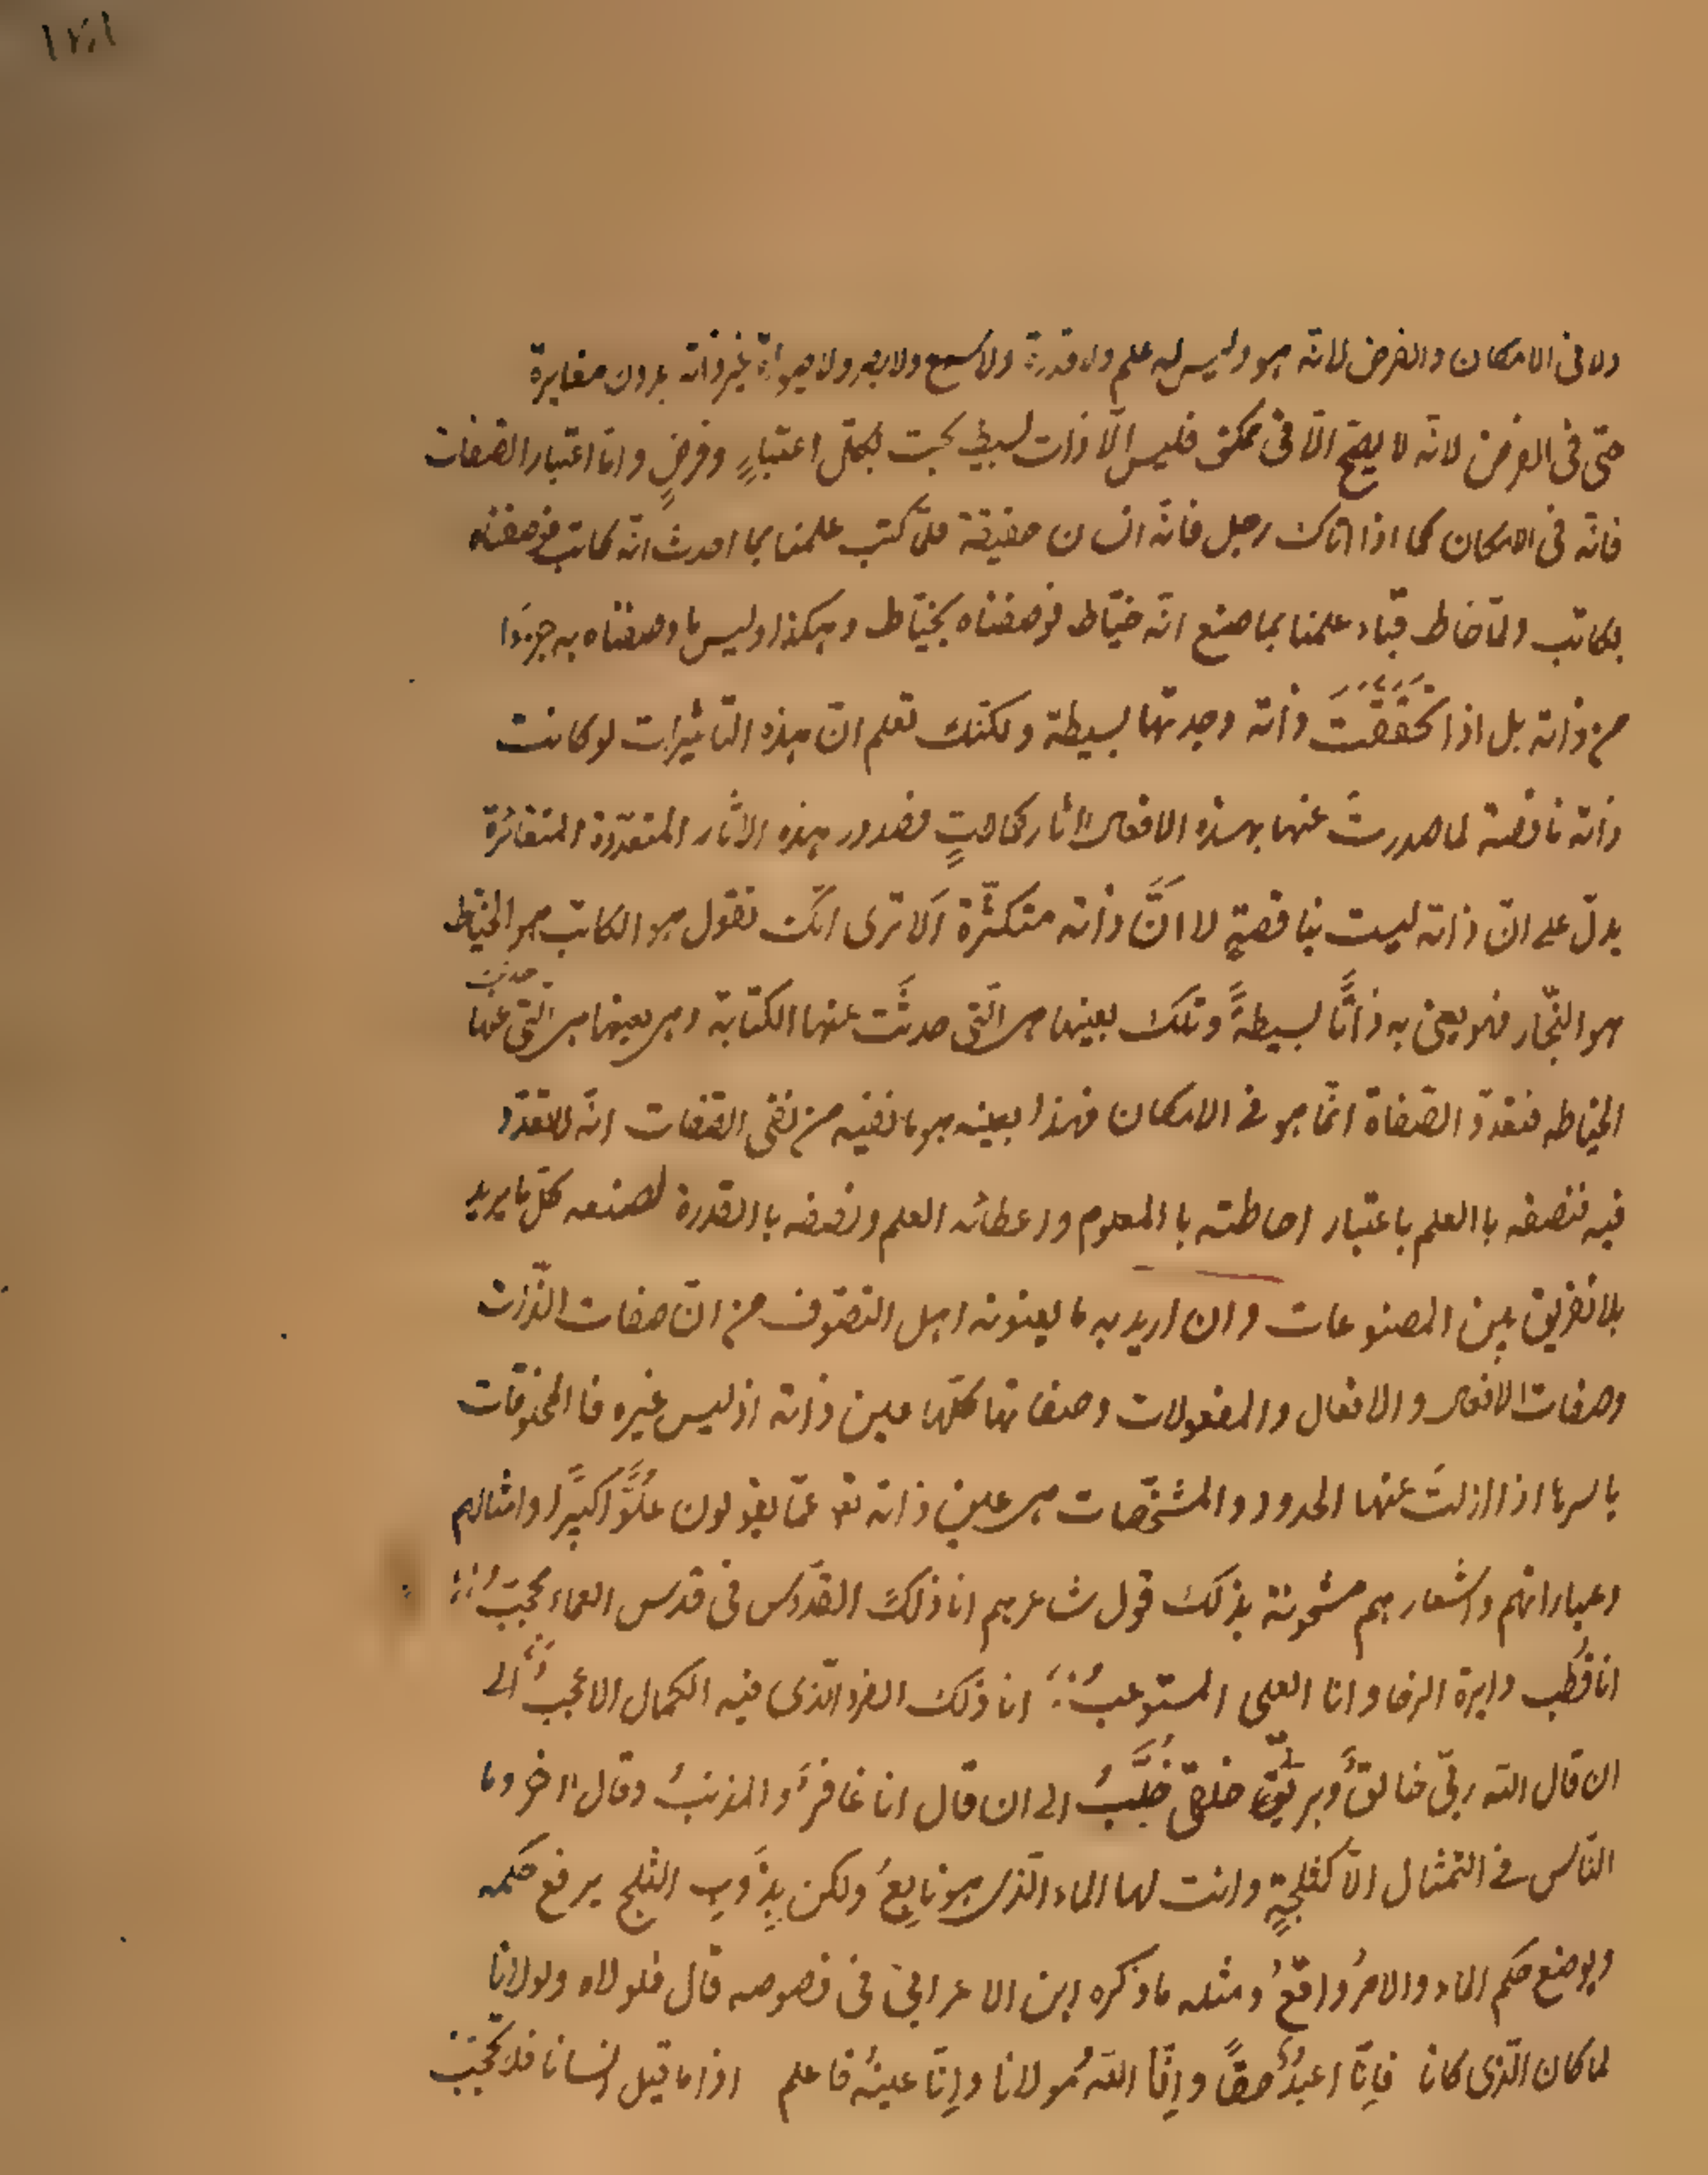 ١٢٠١
ولا فى الامكان والفرض لانه هو وليس له علم ولا قدرة ولا سمع ولا بصر ولا حيواة غير ذاته بدون مغايرة
حتى فى الفرض لانه لا يصح الّا فى ممكن فليس الّا ذات بسيط بحت بكلّ اعتبارٍ وفرضٍ وانّما اعتبار الصّفات
فانّه فى الامكان كما اذا اتاك رجل فانّه انسان حقيقة فلمّا كتب علمنا بما احدث انّه كاتب فوصفناه
بكاتب ولمّا خاط قباء علمنا بما صنع انّه خيّاط فوصفناه بخيّاط وهكذا وليس ما وصفناه به جزءًا
من ذاته بل اذا تحقّقتَ ذاته وجدتها بسيطة ولكنّك تعلم انّ هذه التأثيرات لو كانت
ذاته ناقصة لما صدرتْ عنها بهذه الافعال اثار كمالاتٍ فصدور هذه الاثار المتعدّدة المتغائرة
يدلّ على انّ ذاته ليست بناقصةٍ لا انَّ ذاته متكثّرة اَلا ترى انّك تقول هو الكاتب هو الخيّاط
هو النجّار فهو يعنى به ذاتًا بسيطةً وتلك بعينها هى الّتى حدثَت عنها الكتابة وهى بعينها هى الّتى حدثت عنها
الخياطه فتعدّد الصّفاة انّما هو فى الامكان فهذا بعينه هو ما نفيه من نفى الصّفات انّه لا تعدّد
فيه فنصفه با العلم باعتبار احاطته با المعلوم واعطائه العلم ونصفه با القدرة لصنعه كلّ ما يريد
بلا تفريق بين المصنوعات وان اريد به ما يعنونه اهل التصّوف من انّ صفات الذّات
وصفات الافعال والافعال والمفعولات وصفاتها كلّها عين ذاته اذ ليس غيره فا المخلوقات
باسرها اذا ازلتَ عنها الحدود والمشخّصات هى عين ذاته تع عمّا يقولون علُوًّا كبيرًا وامثالهم
وعباراتهم واشعارهم مشحونة بذلك قول شاعرهم انا ذلكَ القدّوس فى قدس العماء محجّبُ
انا قُطب دايرة الرحا وانا العلى المستوعبُ انا ذلك الفرد الّذى فيه الكمال الاعجبُ الى
ان قال الله ربّى خالقٌ وبريقُ خلقى خُلَّبُ الى ان قال انا غافرٌ والمذنبُ وقال الاخر وما
النّاس فى التّمثال الّا كثلجةٍ وانت لها الماء الّذى هو نابِعُ ولكن بِذَوبِ الثلج يرفع حكمه
ويوضع حكم الماء والامرُ واقعُ ومثله ما ذكره ابن الاعرابى فى فصوصه قال فلولاه ولولانا
لما كان الّذى كانا فإنّا اعبدُ حقًّا وإنَّا اللهُ مولانا وإنّا عينُه فاعلم اذا ما قيل انسانا فلا تحجَبْ